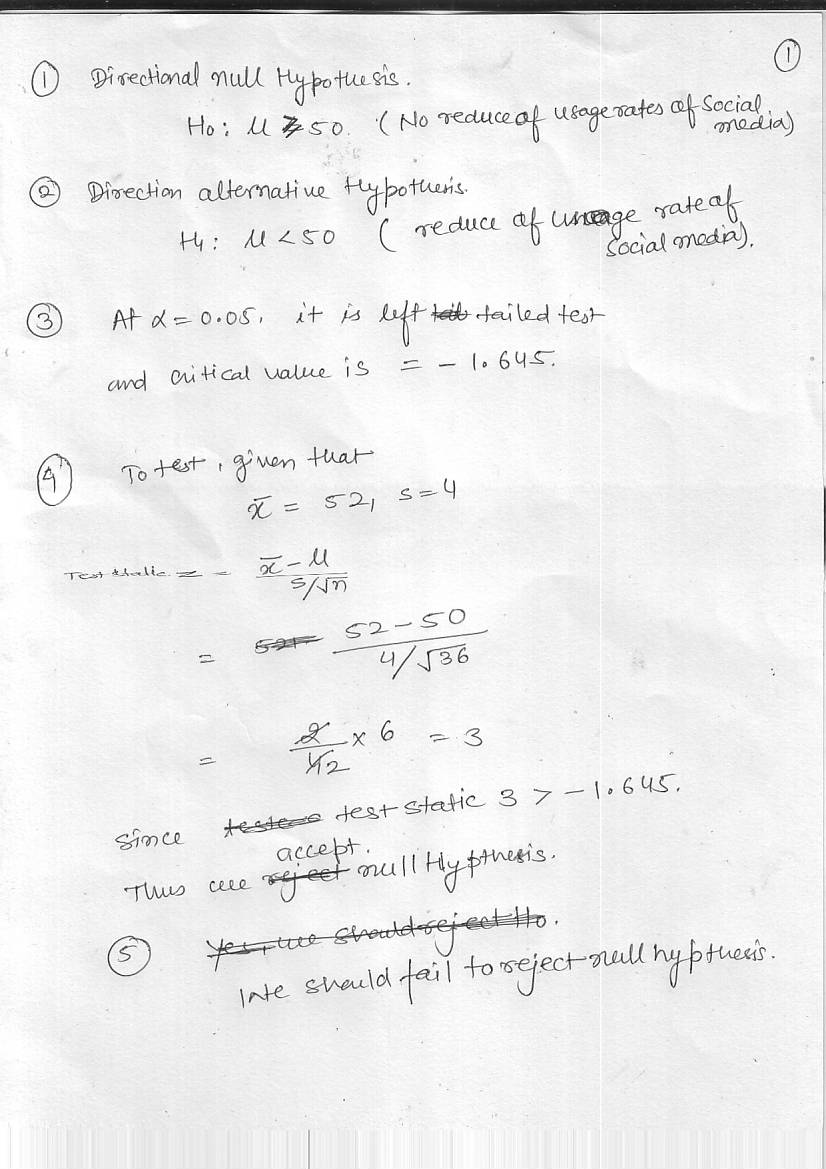 ①
① Directional null Hypothesis.
H₀: μ ≥ 50. (No reduce of usage rates of Social media)
② Direction alternative Hypothesis.
H₁: μ < 50 ( reduce of usage rate of Social media).
③ At α = 0.05, it is left tailed test
and critical value is = - 1.645.
④ To test, given that
x̄ = 52, s = 4
Test static = x̄ - μ / s/√n
= 52 - 50 / 4/√36
= 2 / 4 2 × 6 = 3
Since test static 3 > - 1.645.
accept.
Thus we reject null Hypthesis.
⑤ Yes, we should reject H₀.
We should fail to reject null hypthesis.